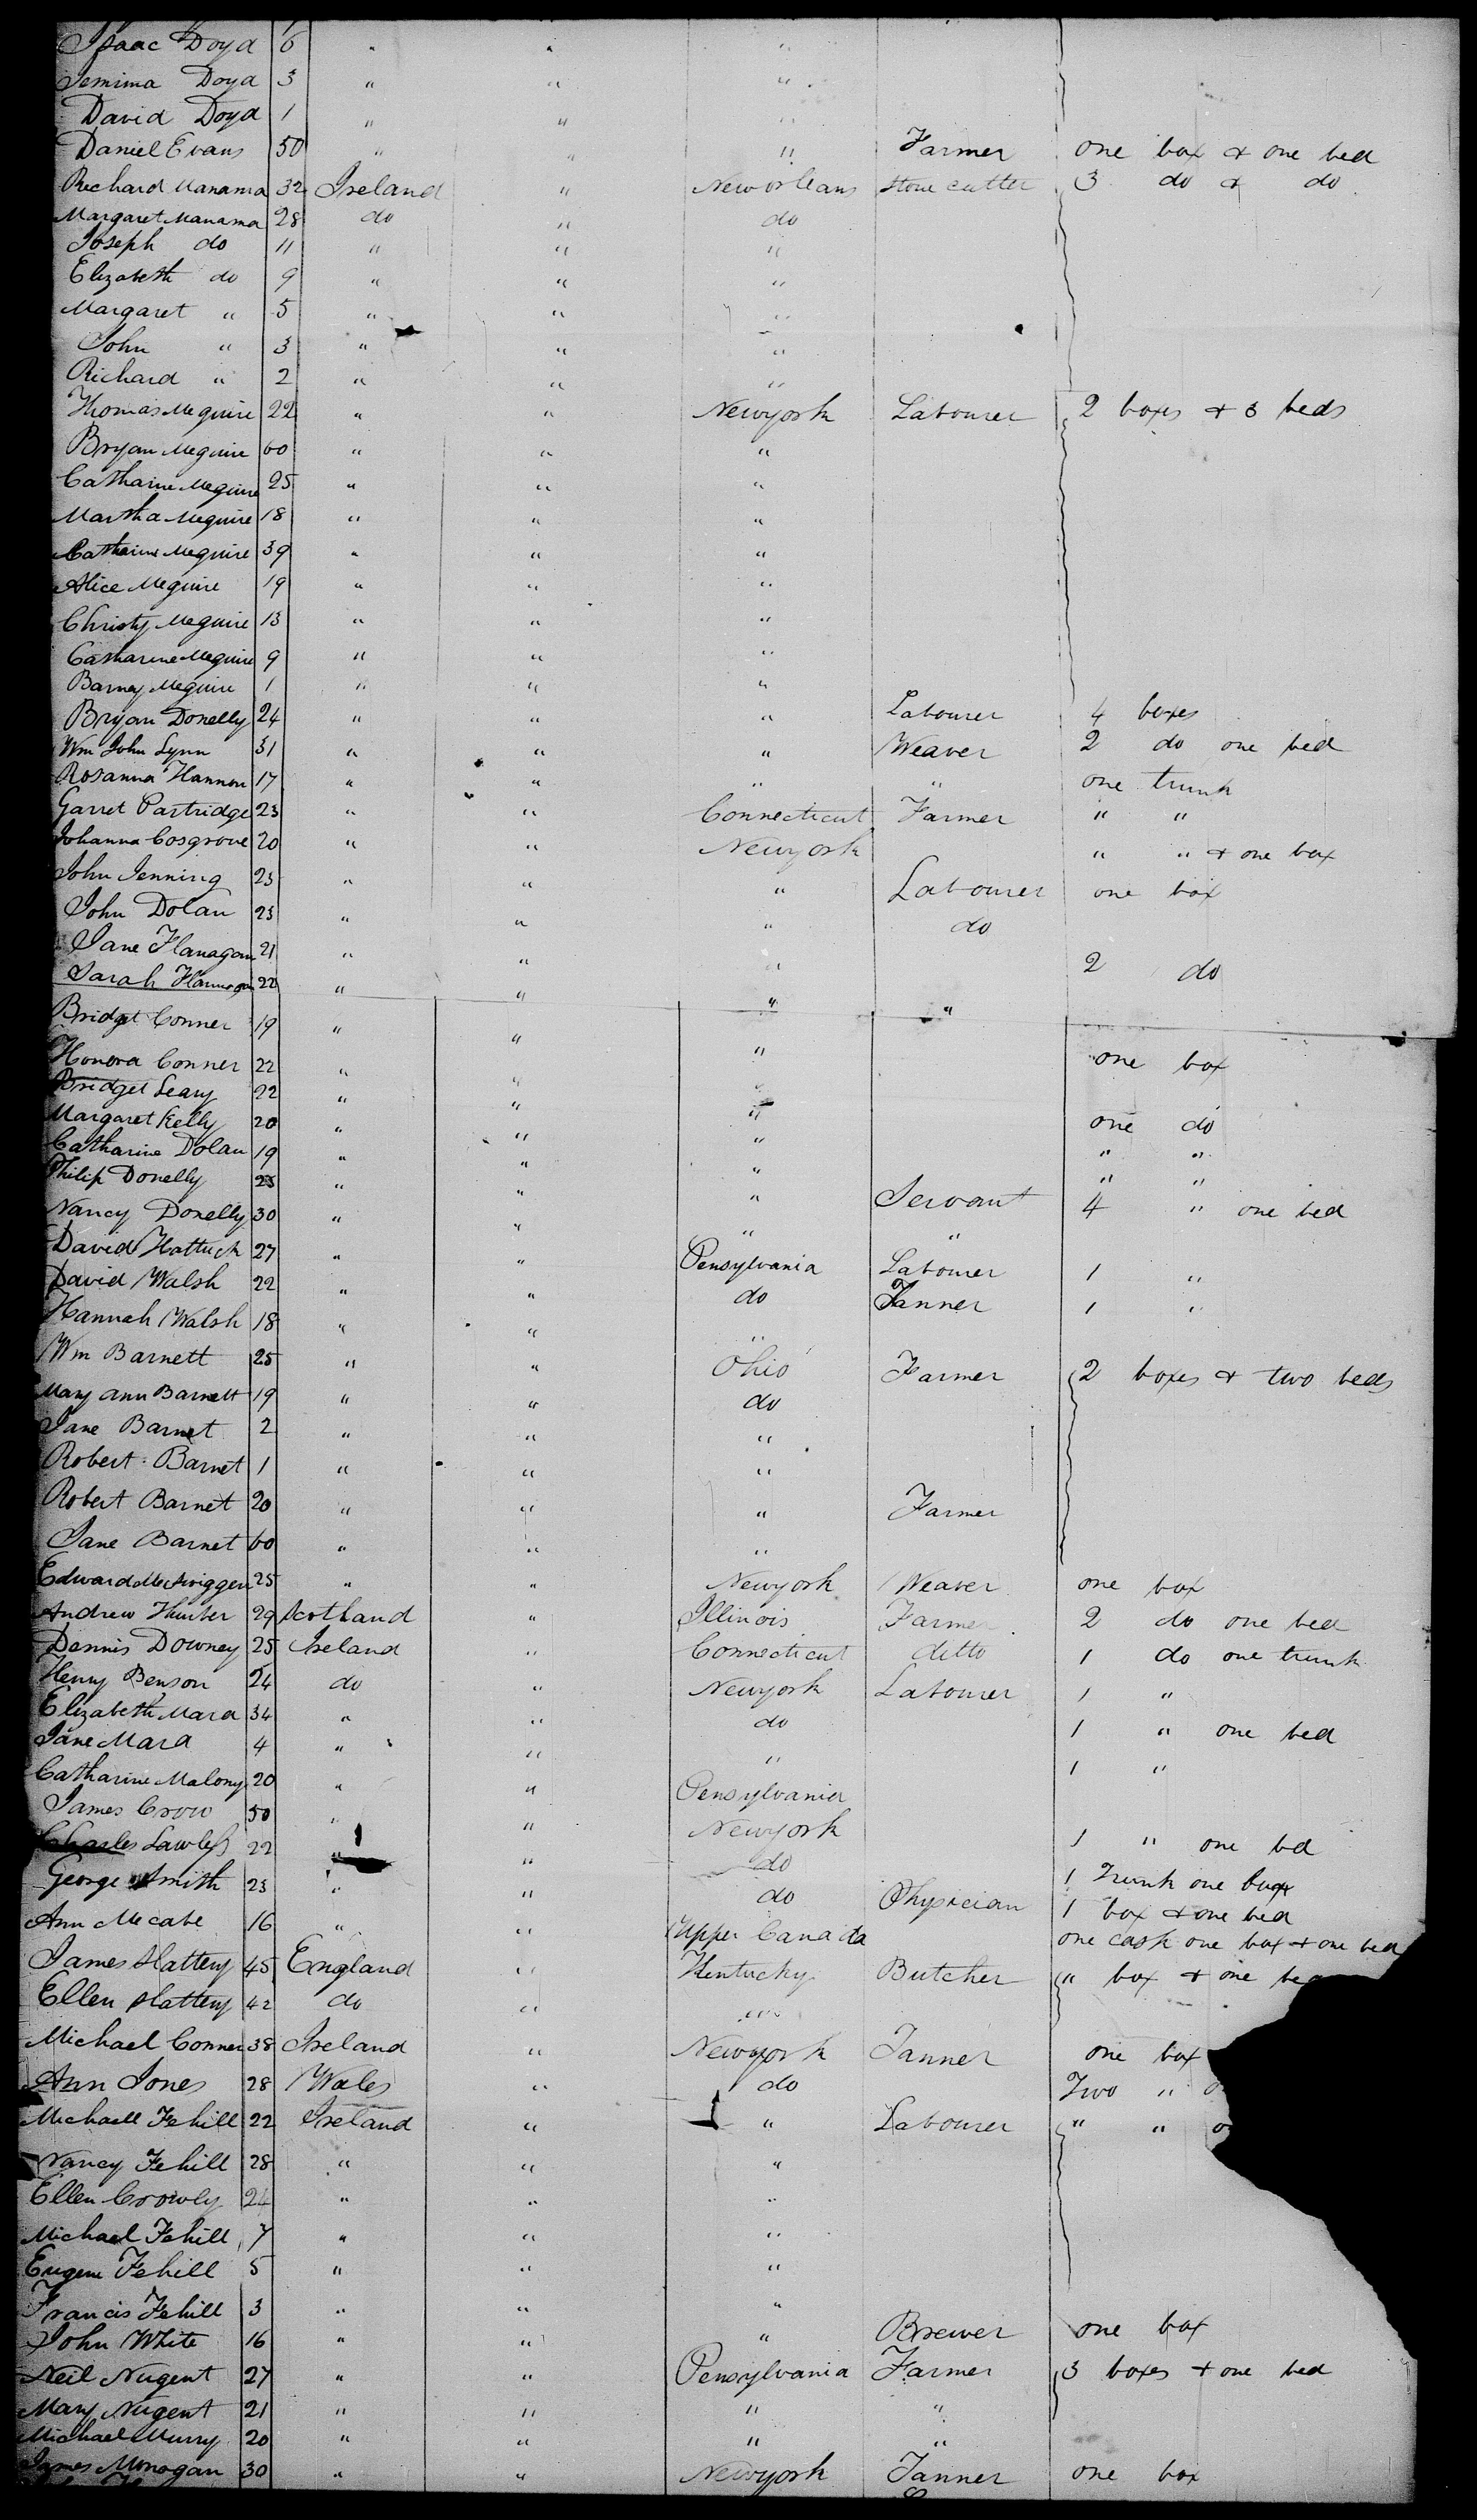 Isaac Doyd 6 " " "
Jemima Doyd 3 " " "
David Doyd 1 " " "
Daniel Evans 50 " " " Farmer one box & one bed
Richard Manama 32 Ireland " New orleans Stone cutter 3 do & do
Margaret Manama 28 do " do
Joseph do 11 " " "
Elizabeth do 9 " " "
Margaret " 5 " " "
John " 3 " " "
Richard " 2 " " "
Thomas Meguire 22 " " Newyork Labourer 2 boxes & 3 beds
Bryan Meguire 60 " " "
Catharine Meguire 25 " " "
Martha Meguire 18 " " "
Catharine Meguire 39 " " "
Alice Meguire 19 " " "
Christy Meguire 13 " " "
Catharine Meguire 9 " " "
Barney Meguire 1 " " "
Bryan Donelly 24 " " " Labourer 4 boxes
Wm John Lynn 31 " " " Weaver 2 do one bed
Rosanna Hannon 17 " " " " one trunk
Garret Partridge 23 " " Connecticut Farmer " "
Johanna Cosgrove 20 " " Newyork " " & one box
John Jenning 23 " " " Labourer one box
John Dolan 23 " " " do
Jane Flanagan 21 " " " 2 do
Sarah Flannagan 22 " " " "
Bridget Conner 19 " " "
Honora Conner 22 " " " one box
Bridget Leary 22 " " "
Margaret Kelly 20 " " " one do
Catharine Dolan 19 " " " " "
Philip Donelly 23 " " " Servant " "
Nancy Donelly 30 " " " " 4 " one bed
David Hattuck 27 " " Pensylvania Labourer 1 "
David Walsh 22 " " do Tanner 1 "
Hannah Walsh 18 " " "
Wm Barnett 25 " " Ohio Farmer 2 boxes & two beds
Mary ann Barnett 19 " " do
Jane Barnet 2 " " "
Robert Barnet 1 " " "
Robert Barnet 20 " " " Farmer
Jane Barnet 60 " " "
Edward McSwiggen 25 " " Newyork Weaver one box
Andrew Hunter 29 Scotland " Illinois Farmer 2 do one bed
Dennis Downey 25 Ireland " Connecticut ditto 1 do one trunk
Henry Benson 24 do " Newyork Labourer 1 "
Elizabeth Mara 34 " " do 1 " one bed
Jane Mara 4 " " " 1 "
Catharine Malony 20 " " Pensylvania
James Crow 50 " " Newyork 1 " one bed
Charles Lawless 22 " " do 1 Trunk one box
George Smith 23 " " do Physician 1 box & one bed
Ann Mccabe 16 " " Upper Canada one cask one box & one bed
James Slattery 45 England " Kentucky Butcher " box & one bed
Ellen Slattery 42 do " "
Michael Conner 38 Ireland " Newyork Tanner one box
Ann Jones 28 Wales " do Two "
Michaell Fehill 22 Ireland " " Labourer " "
Nancy Fehill 28 " " "
Ellen Crowly 24 " " "
Michael Fehill 7 " " "
Eugene Fehill 5 " " "
Francis Fehill 3 " " "
John White 16 " " " Brewer one box
Neil Nugent 27 " " Pensylvania Farmer 3 boxes & one bed
Mary Nugent 21 " " " "
Michael Murry 20 " " " "
James Monagan 30 " " Newyork Tanner one box